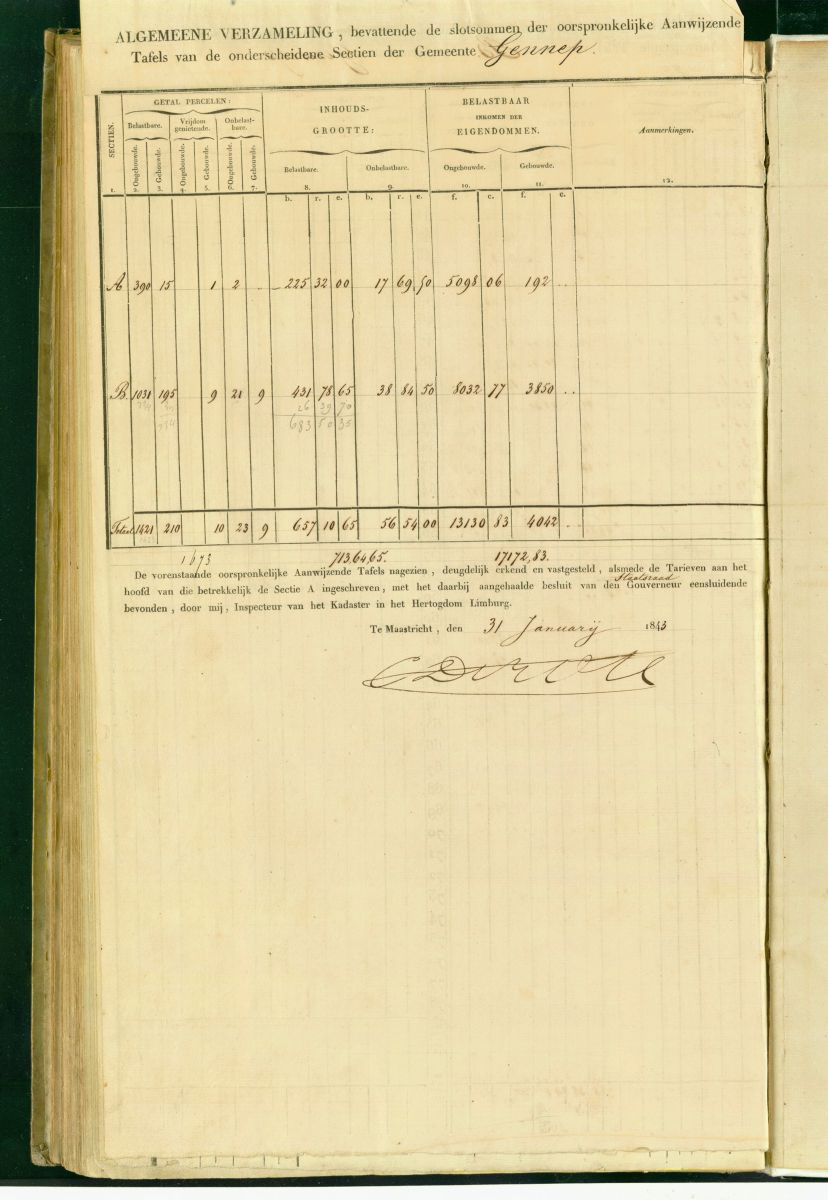 ALGEMEENE VERZAMELING , bevattende de slotsommen der oorspronkelijke Aanwijzende
Tafels van de onderscheidene Sectien der Gemeente Gennep.
SECTIEN. GETAL PERCELEN: INHOUDS-GROOTTE: BELASTBAAR INKOMEN DER EIGENDOMMEN. Aanmerkingen.
Belastbare. Vrijdom genietende. Onbelast-bare. Belastbare. Onbelastbare. Ongebouwde. Gebouwde.
Ongebouwde. Gebouwde. Ongebouwde. Gebouwde. Ongebouwde. Gebouwde.
1. 2. 3. 4. 5. 6. 7. 8. 9. 10. 11. 12.
b. r. e. b. r. e. f. c. f. c.
A 390 15 1 2 .. 225 32 00 17 69 50 5098 06 192 ..
B. 1031 195 9 21 9 431 78 65 38 84 50 8032 77 3850 ..
26 39 70
683 50 35
Totaal 1421 210 10 23 9 657 10 65 56 54 00 13130 83 4042 ..
1673 713,64,65. 17172,83.
De vorenstaande oorspronkelijke Aanwijzende Tafels nagezien , deugdelijk erkend en vastgesteld , alsmede de Tarieven aan het
Staatsraad
hoofd van die betrekkelijk de Sectie A ingeschreven , met het daarbij aangehaalde besluit van den Gouverneur eensluidende
bevonden , door mij , Inspecteur van het Kadaster in het Hertogdom Limburg.
Te Maastricht , den 31 Januarij 1843